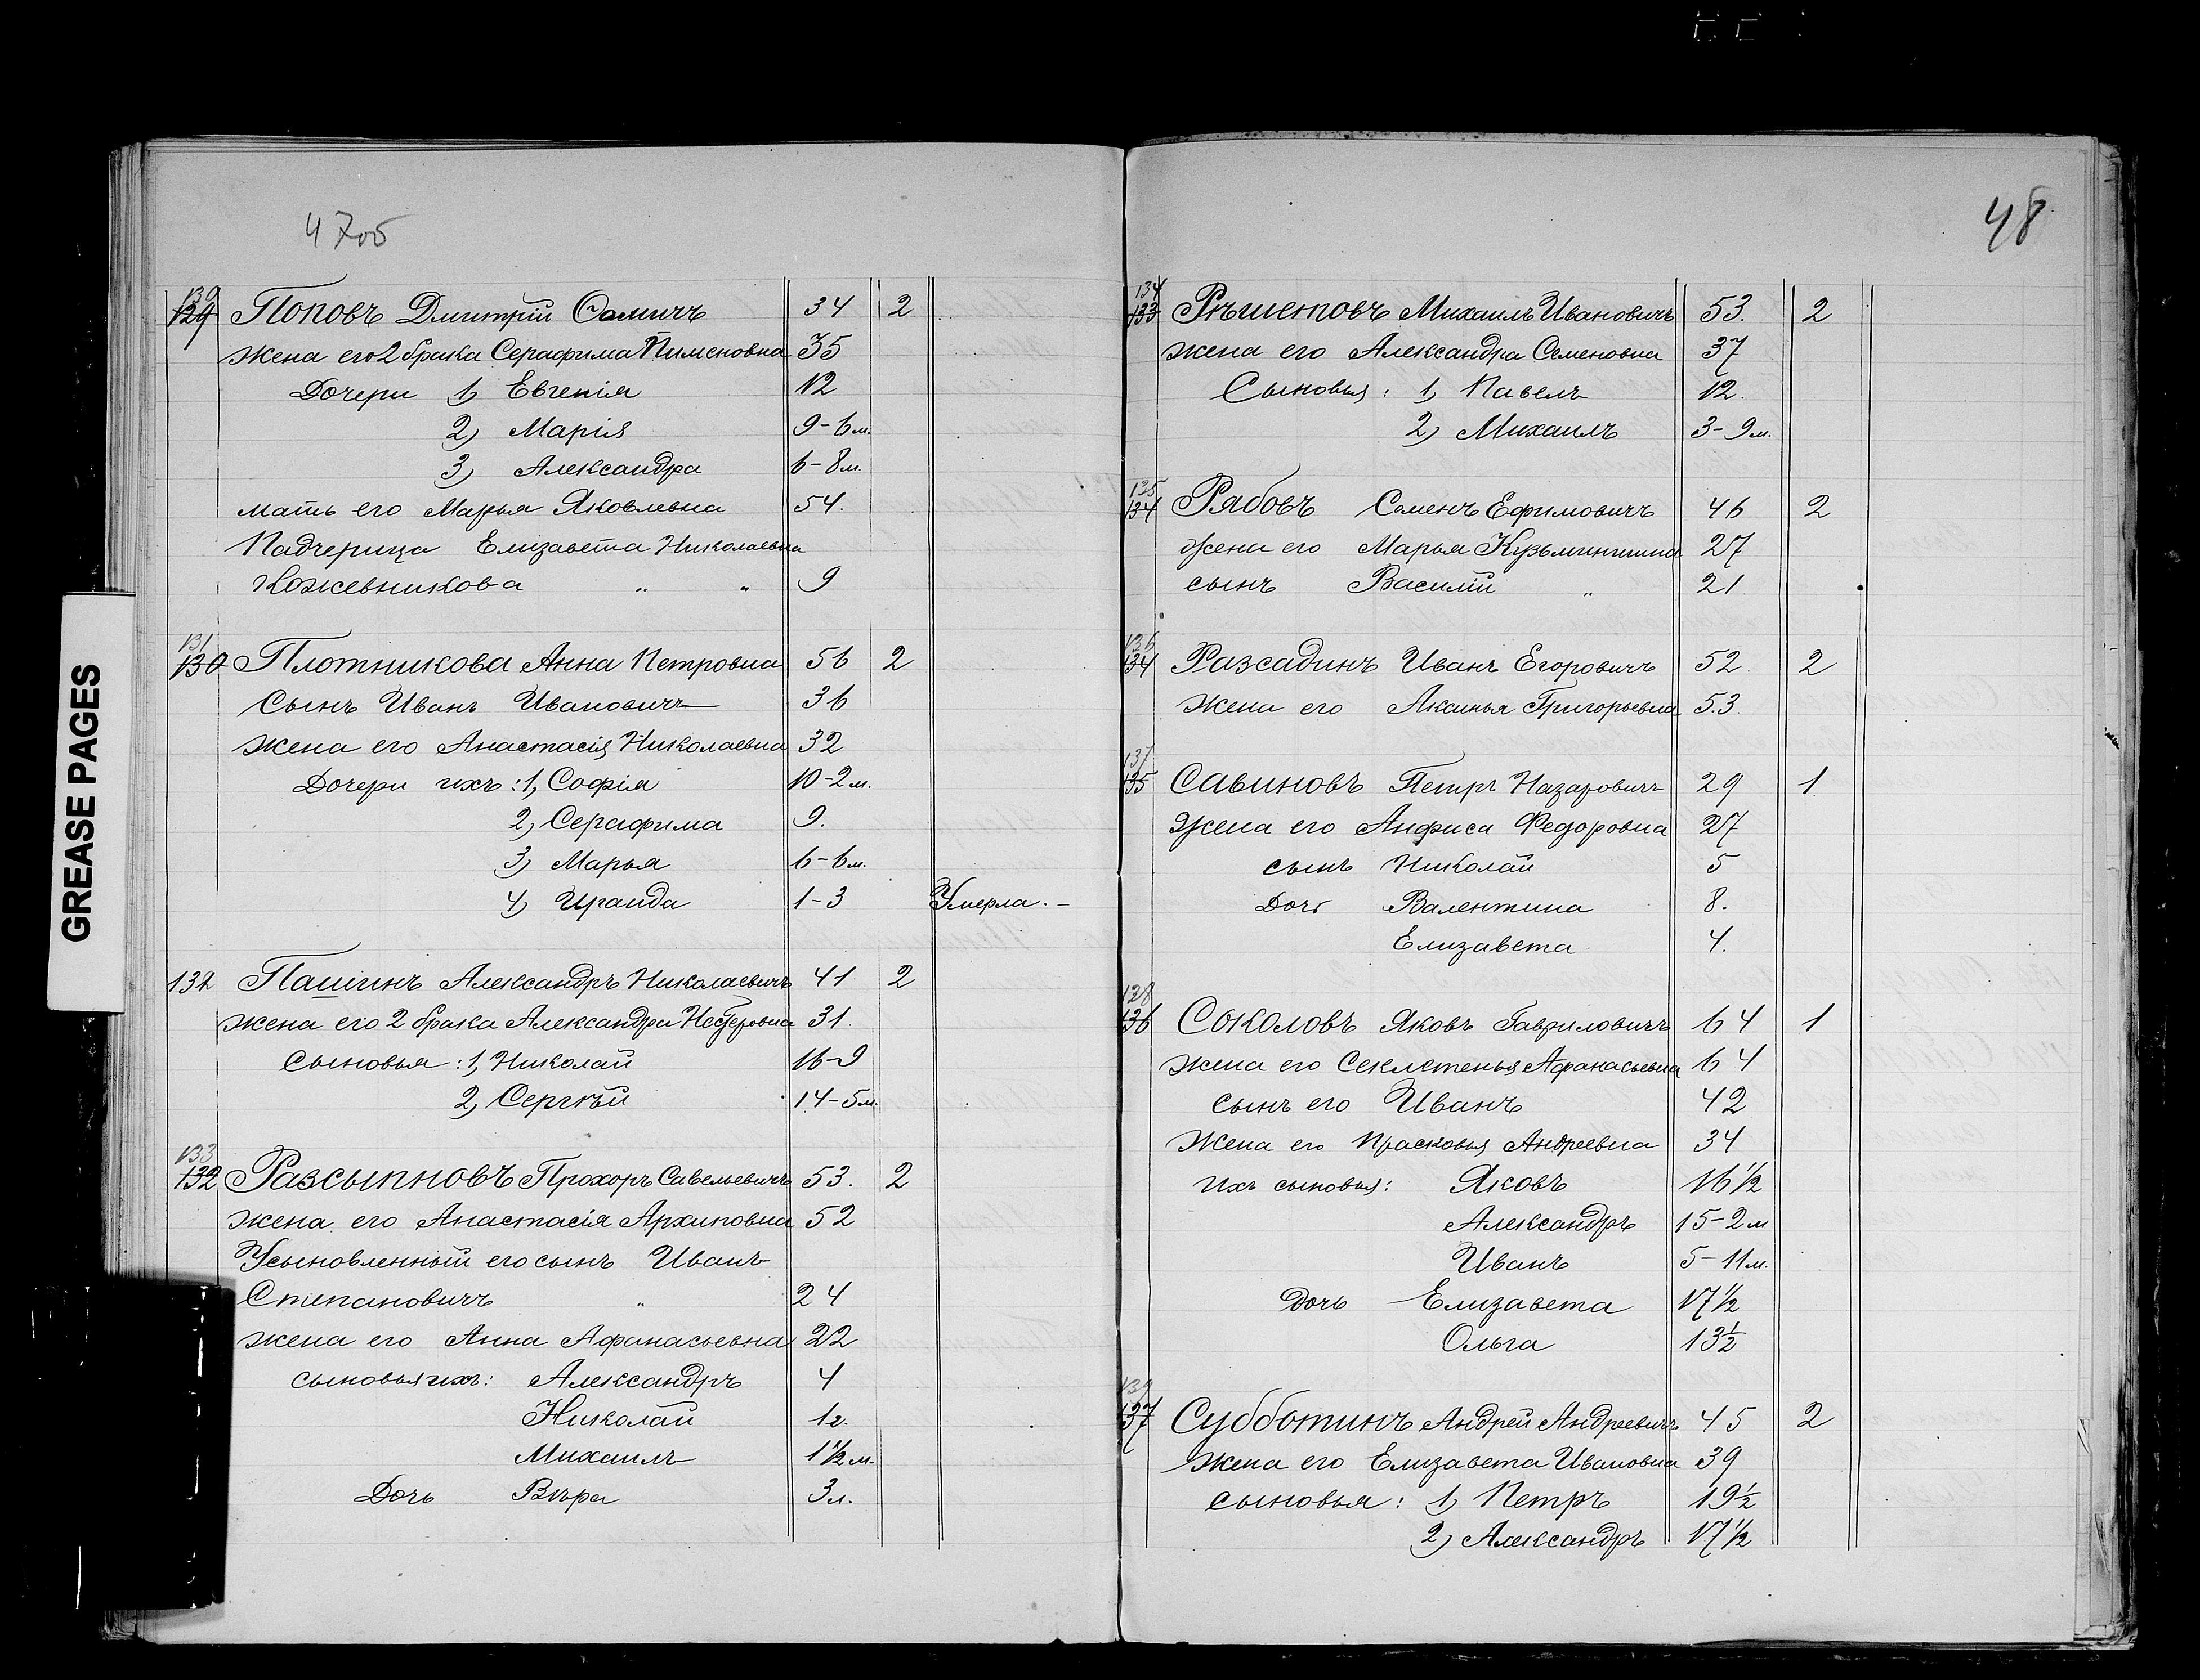 47 об
130
129 Поповъ Дмитрій Фомичъ 34 2
жена его 2 брака Серафима Пименовна 35
Дочери 1) Евгенія 12
2) Марія 9-6 м.
3) Александра 6-8 м.
мать его Марья Яковлевна 54.
Падчерица Елизавета Николаевна
Кожевникова " " 9
131
130 Плотникова Анна Петровна 56 2
Сынъ Иванъ Ивановичъ 36
жена его Анастасія Николаевна 32
Дочери ихъ: 1, Софія 10-2 м.
2, Серафима 9.
3) Марья 6-6 м.
4) Ираида 1-3 Умерла. -
132 Пашинъ Александръ Николаевичъ 41 2
жена его 2 брака Александра Нестеровна 31.
Сыновья: 1, Николай 16-9
2, Сергѣй 14-5 м.
133
132 Разсыпновъ Прохоръ Савельевичъ 53. 2
жена его Анастасія Архиповна 52
Усыновленный его сынъ Иванъ
Степановичъ " 24
жена его Анна Афанасьевна 22
сыновья ихъ: Александръ 4
Николай 1 г.
Михаилъ 1½ м.
Дочь Вѣра 3 л.
GREASE PAGES
48
134
133 Рѣшетовъ Михаилъ Ивановичъ 53. 2
жена его Александра Семеновна 37
Сыновья: 1, Павелъ 12.
2) Михаилъ 3-9 м.
135
134 Рябовъ Семенъ Ефимовичъ 46 2
Жена его Марья Кузьминишна 27
сынъ Василій " 21
136
134 Разсадинъ Иванъ Егоровичъ 52. 2
Жена его Аксинья Григорьевна 53.
137
135 Савиновъ Петръ Назаровичъ 29 1
Жена его Анфиса Федоровна 27
сынъ Николай 5
Дочь Валентина 8.
Елизавета 4.
138
136 Соколовъ Яковъ Гавриловичъ 64 1
жена его Секлетенья Афанасьевна 64
сынъ его Иванъ 42
Жена его Прасковья Андреевна 34
Ихъ сыновья: Яковъ 16½
Александръ 15-2 м
Иванъ 5-11 м.
Дочь Елизавета 17½
Ольга 13½
139
137 Субботинъ Андрей Андреевичъ 45 2
Жена его Елизавета Ивановна 39
сыновья: 1) Петръ 19½
2) Александръ 17½